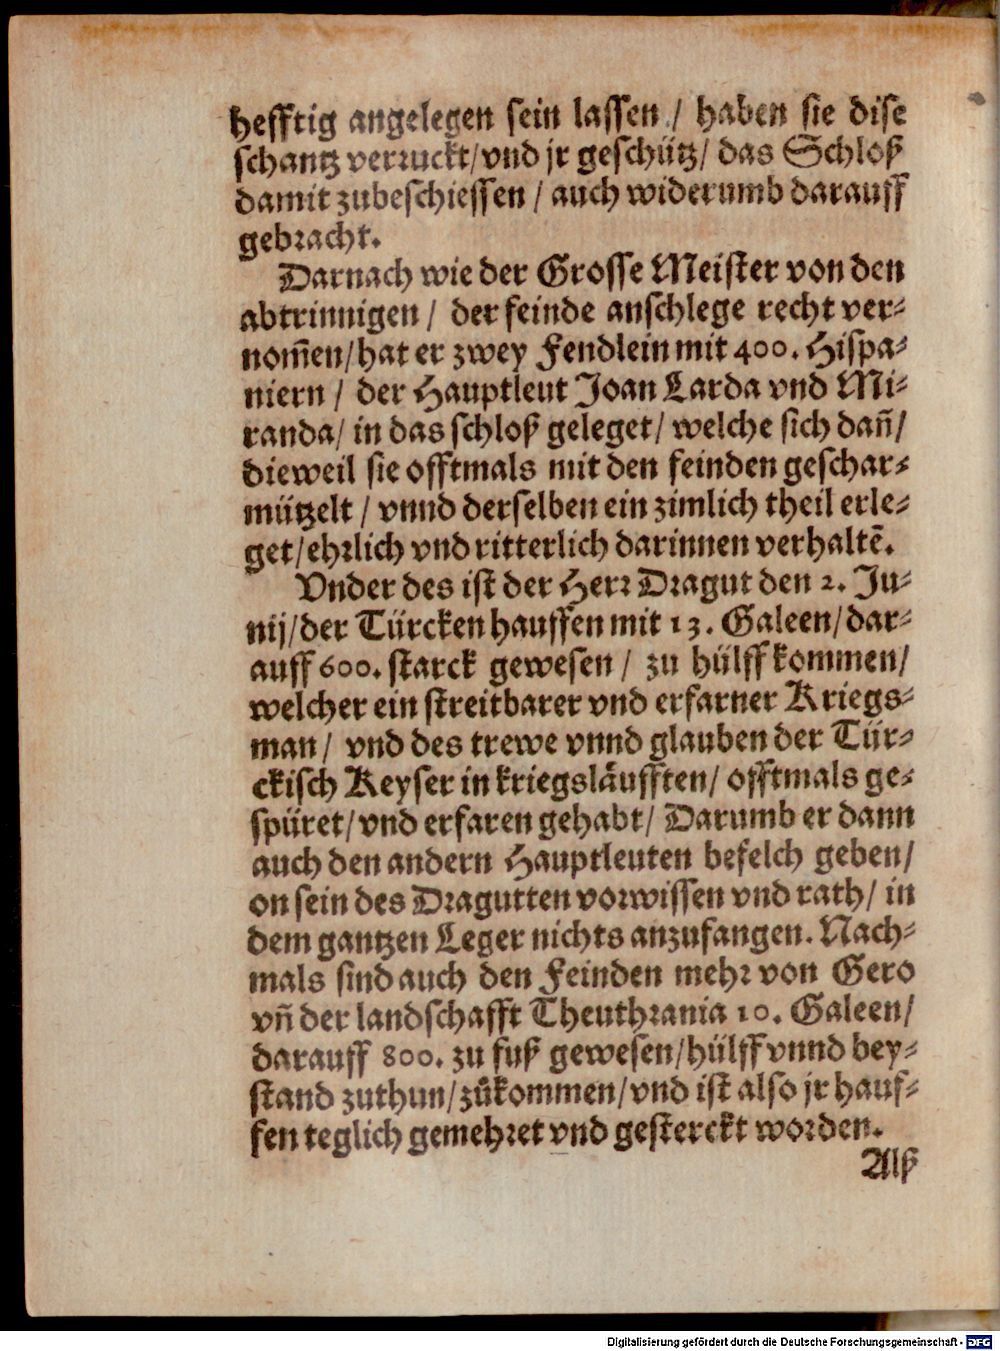 hefftig angelegen sein lassen / haben sie dise
schantz verruckt/vnd jr geschütz/ das Schloß
damit zubeschiessen / auch widerumb darauff
gebracht.
Darnach wie der Grosse Meister von den
abtrinnigen / der feinde anschlege recht ver-
nom̄en/hat er zwey Fendlein mit 400. Hispa-
niern / der Hauptleut Joan Larda vnd Mi-
randa/ in das schloß geleget/ welche sich dañ/
dieweil sie offtmals mit den feinden geschar-
mützelt / vnnd derselben ein zimlich theil erle-
get/ehrlich vnd ritterlich darinnen verhaltē.
Vnder des ist der Herr Dragut den 2. Ju-
nij/der Türcken hauffen mit 13. Galeen/dar-
auff 600. starck gewesen / zu hülff kommen/
welcher ein streitbarer vnd erfarner Kriegs-
man/ vnd des trewe vnnd glauben der Tür-
ckisch Keyser in kriegsläufften/ offtmals ge-
spüret/vnd erfaren gehabt/ Darumb er dann
auch den andern Hauptleuten befelch geben/
on sein des Dragutten vorwissen vnd rath/ in
dem gantzen Leger nichts anzufangen. Nach-
mals sind auch den Feinden mehr von Gero
vñ der landschafft Theuthrania 10. Galeen/
darauff 800. zu fuß gewesen/hülff vnnd bey-
stand zuthun/zůkommen/vnd ist also jr hauf-
fen teglich gemehret vnd gesterckt worden.
Alß
Digitalisierung gefördert durch die Deutsche Forschungsgemeinschaft - DFG